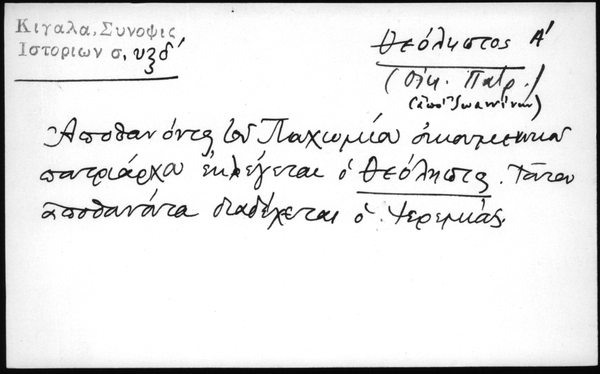 Κιγαλα, Συνοψις
Ιστοριων σ, υξδ´
Θεόληπτος Α´
(Οίκ. Πατρ.)
(ἀπό Ἰωαννίνων)
Ἀποθανόντος τοῦ Παχωμίου οἰκουμενικοῦ
πατριάρχου ἐκλέγεται ὁ Θεόληπτος. Τούτου
ἀποθανόντος διαδέχεται ὁ Ἱερεμίας